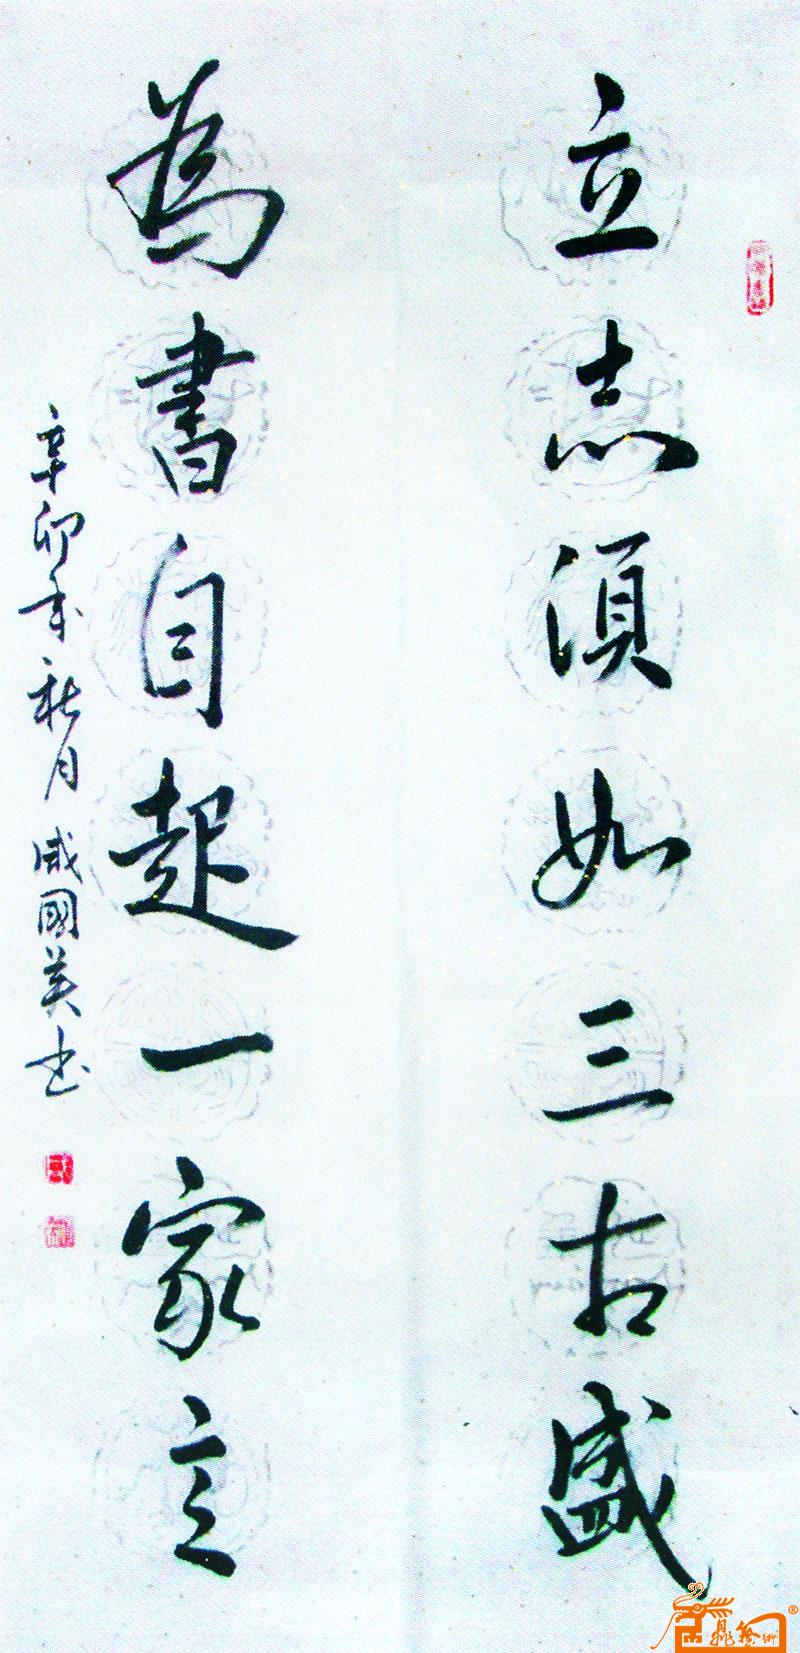 立志須如三古盛
為書自起一家言
辛卯年秋月 戚國美书